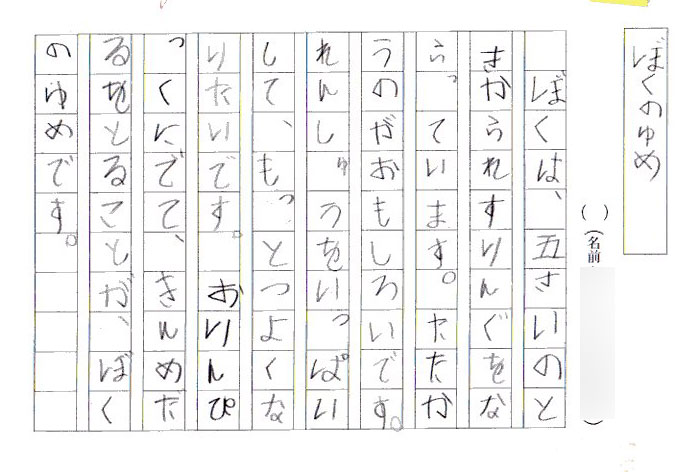 ぼくのゆめ
( )(名前 )
ぼくは、五さいのと
きかられすりんぐをな
らっています。たたか
うのがおもしろいです。
れんしゅうをいっぱい
して、もっとつよくな
りたいです。おりんぴ
っくにでて、きんめだ
るをとることが、ぼく
のゆめです。